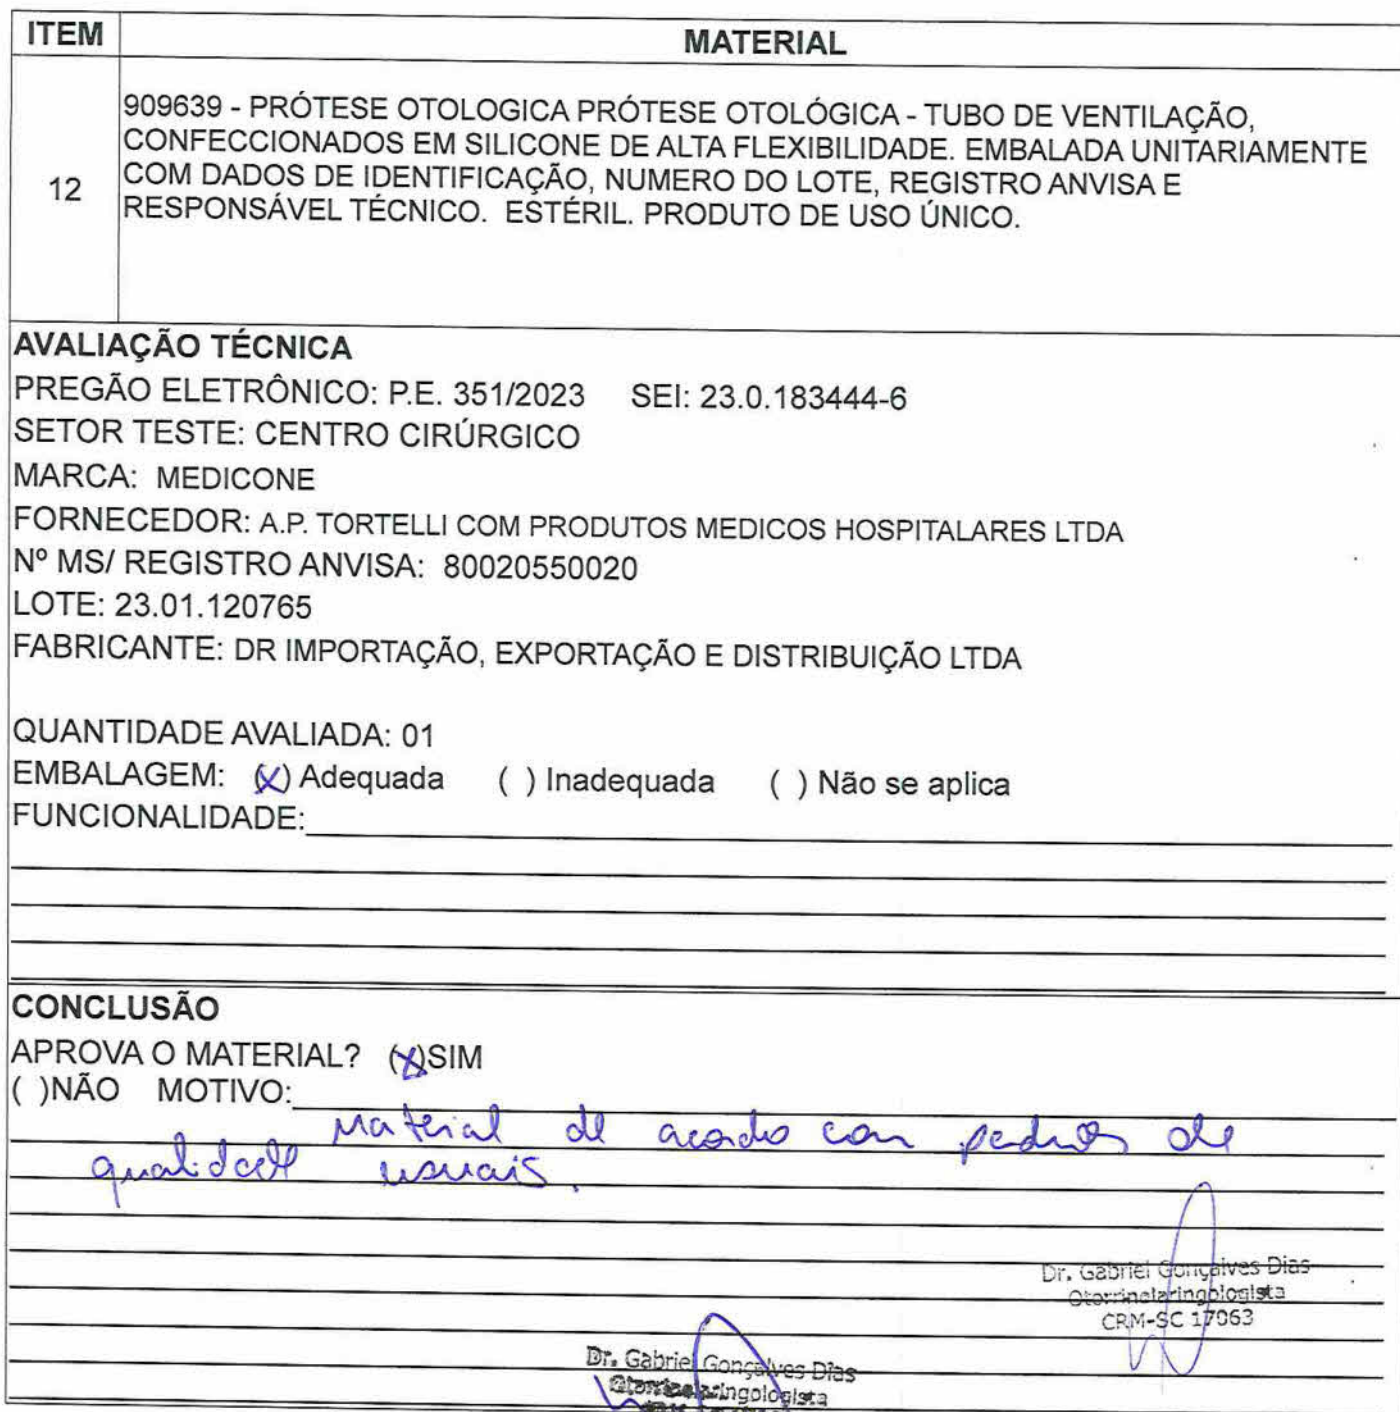 ITEM MATERIAL
909639 - PRÓTESE OTOLOGICA PRÓTESE OTOLÓGICA - TUBO DE VENTILAÇÃO,
CONFECCIONADOS EM SILICONE DE ALTA FLEXIBILIDADE. EMBALADA UNITARIAMENTE
12 COM DADOS DE IDENTIFICAÇÃO, NUMERO DO LOTE, REGISTRO ANVISA E
RESPONSÁVEL TÉCNICO. ESTÉRIL. PRODUTO DE USO ÚNICO.
AVALIAÇÃO TÉCNICA
PREGÃO ELETRÔNICO: P.E. 351/2023 SEI: 23.0.183444-6
SETOR TESTE: CENTRO CIRÚRGICO
MARCA: MEDICONE
FORNECEDOR: A.P. TORTELLI COM PRODUTOS MEDICOS HOSPITALARES LTDA
Nº MS/ REGISTRO ANVISA: 80020550020
LOTE: 23.01.120765
FABRICANTE: DR IMPORTAÇÃO, EXPORTAÇÃO E DISTRIBUIÇÃO LTDA
QUANTIDADE AVALIADA: 01
EMBALAGEM: (X) Adequada ( ) Inadequada ( ) Não se aplica
FUNCIONALIDADE:
CONCLUSÃO
APROVA O MATERIAL? (X)SIM
( )NÃO MOTIVO:
Material de acordo com padrões de
qualidade usuais.
Dr. Gabriel Gonçalves Dias
Otorrinolaringologista
CRM-SC 17063
Dr. Gabriel Gonçalves Dias
Otorrinolaringologista